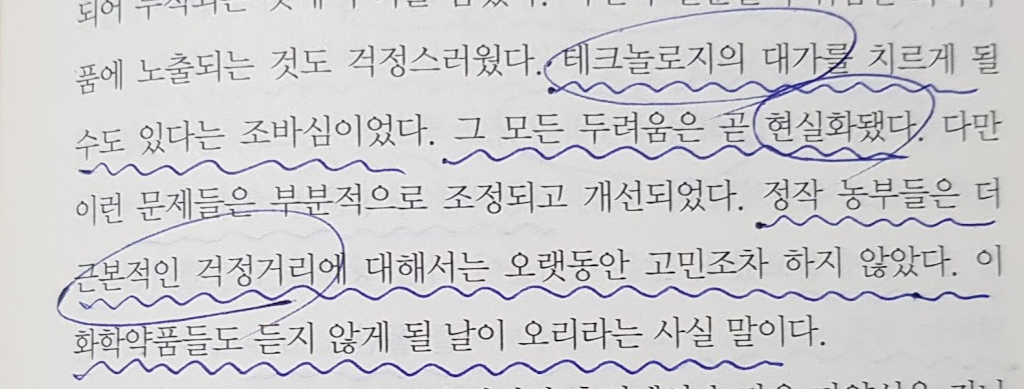 품에 노출되는 것도 걱정스러웠다. 테크놀로지의 대가를 치르게 될
수도 있다는 조바심이었다. 그 모든 두려움은 곧 현실화됐다. 다만
이런 문제들은 부분적으로 조정되고 개선되었다. 정작 농부들은 더
근본적인 걱정거리에 대해서는 오랫동안 고민조차 하지 않았다. 이
화학약품들도 듣지 않게 될 날이 오리라는 사실 말이다.